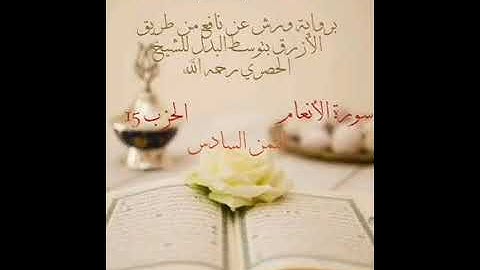 برواية ورش عن نافع من طريق
الأزرق بتوسط البدل للشيخ
الحصري رحمه الله
سورة الأنعام الحزب 15
الثمن السادس